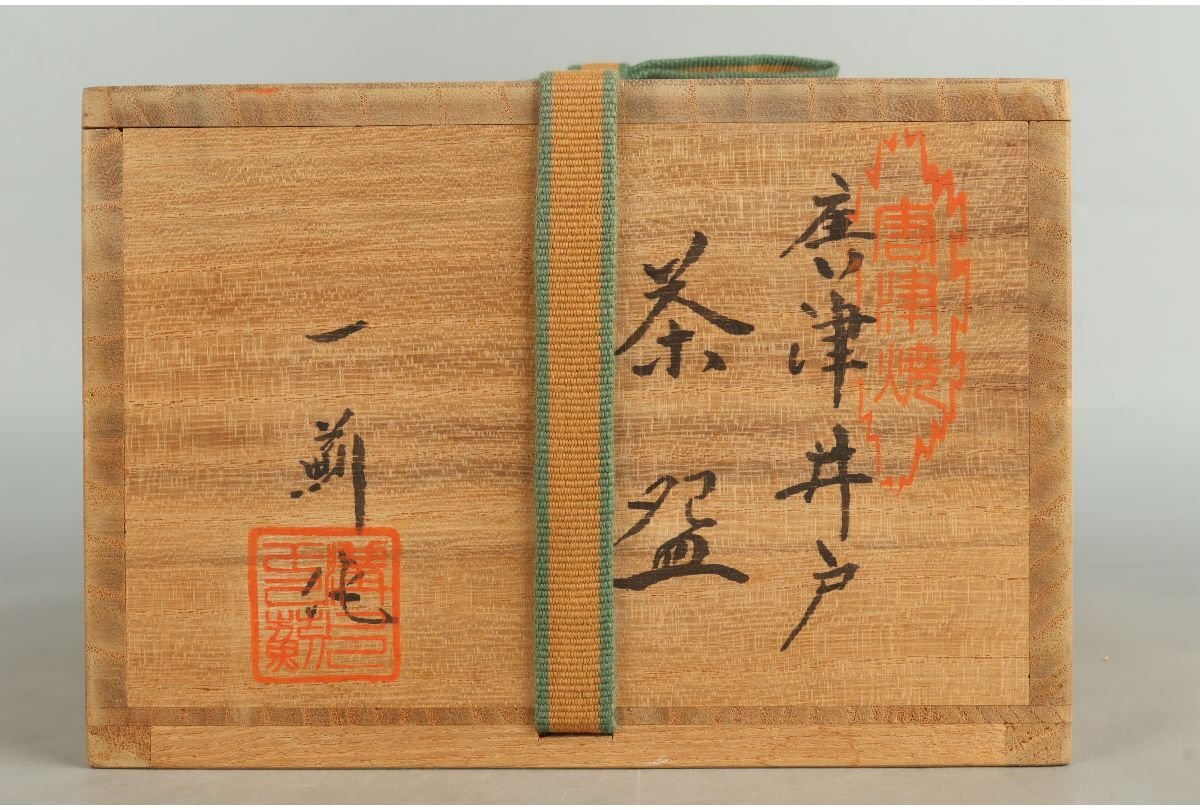 唐津焼
唐津井戸
茶盌
一薊作